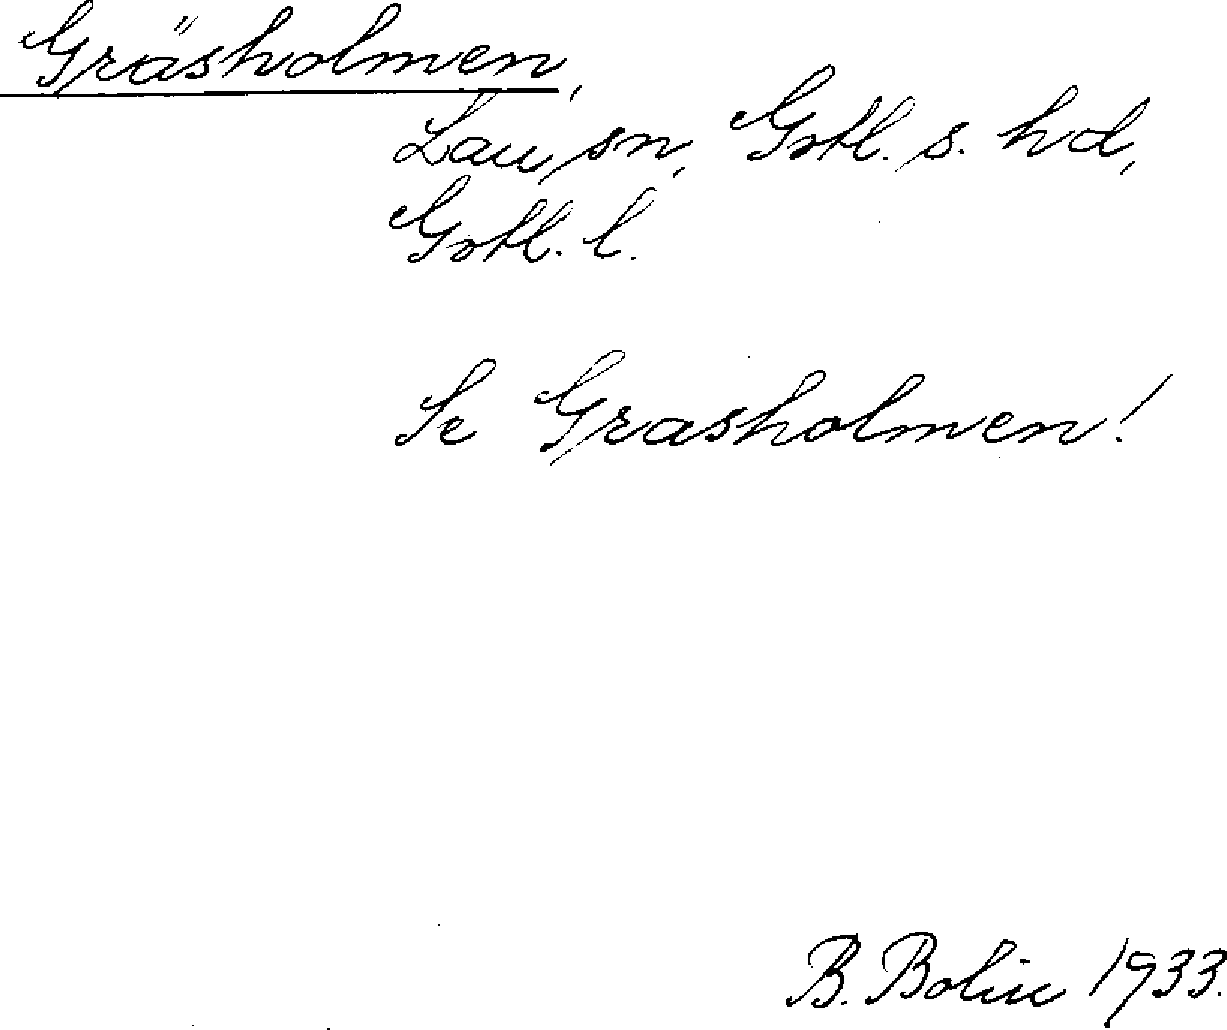 Gräsholmen,
Lau sn, Gotl. s. hd,
Gotl. l.
Se Grasholmen!
B. Bolin 1933.